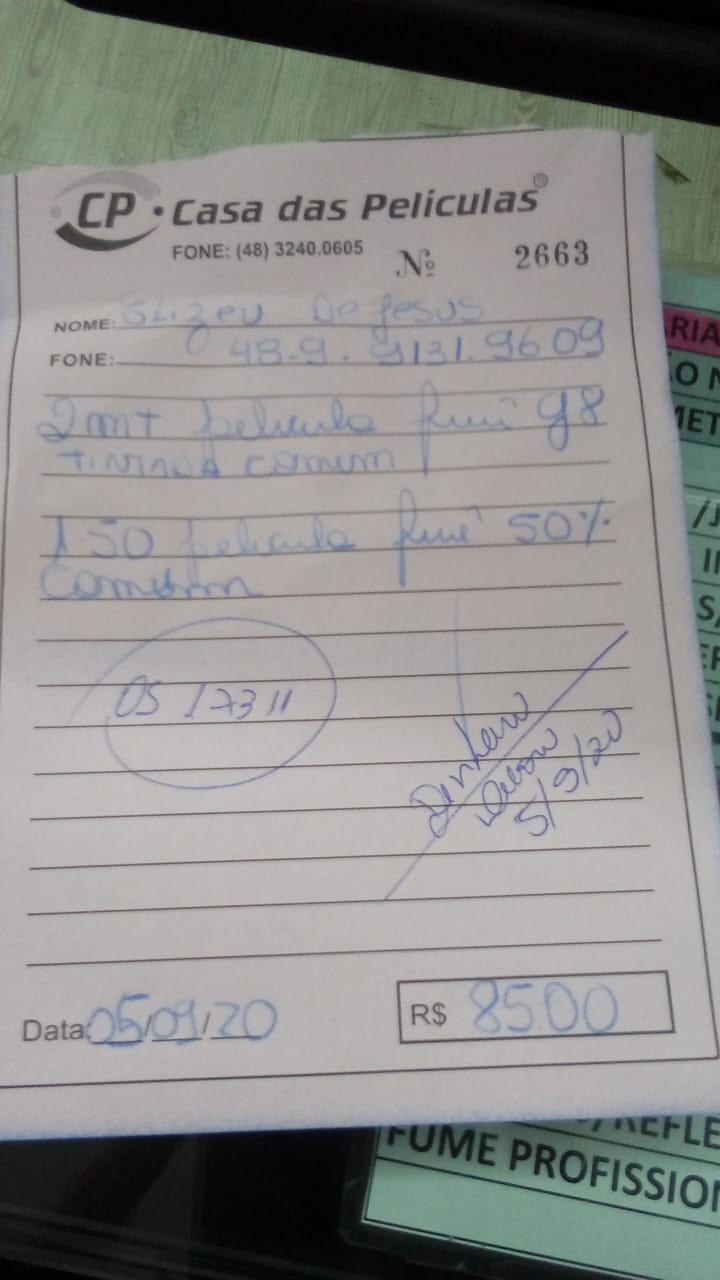 CP • Casa das Películas®
FONE: (48) 3240.0605 Nº 2663
NOME: Elizeu De Jesus
FONE: 48-9. 9131.9609
2mt pelicula fumê g8
comum
1.50 pelicula fumê 50%
comum
05 17311
5/9/20
Data: 05/09/20 R$ 8500
RIA
O N
MET
/REFLE
FUME PROFISSION